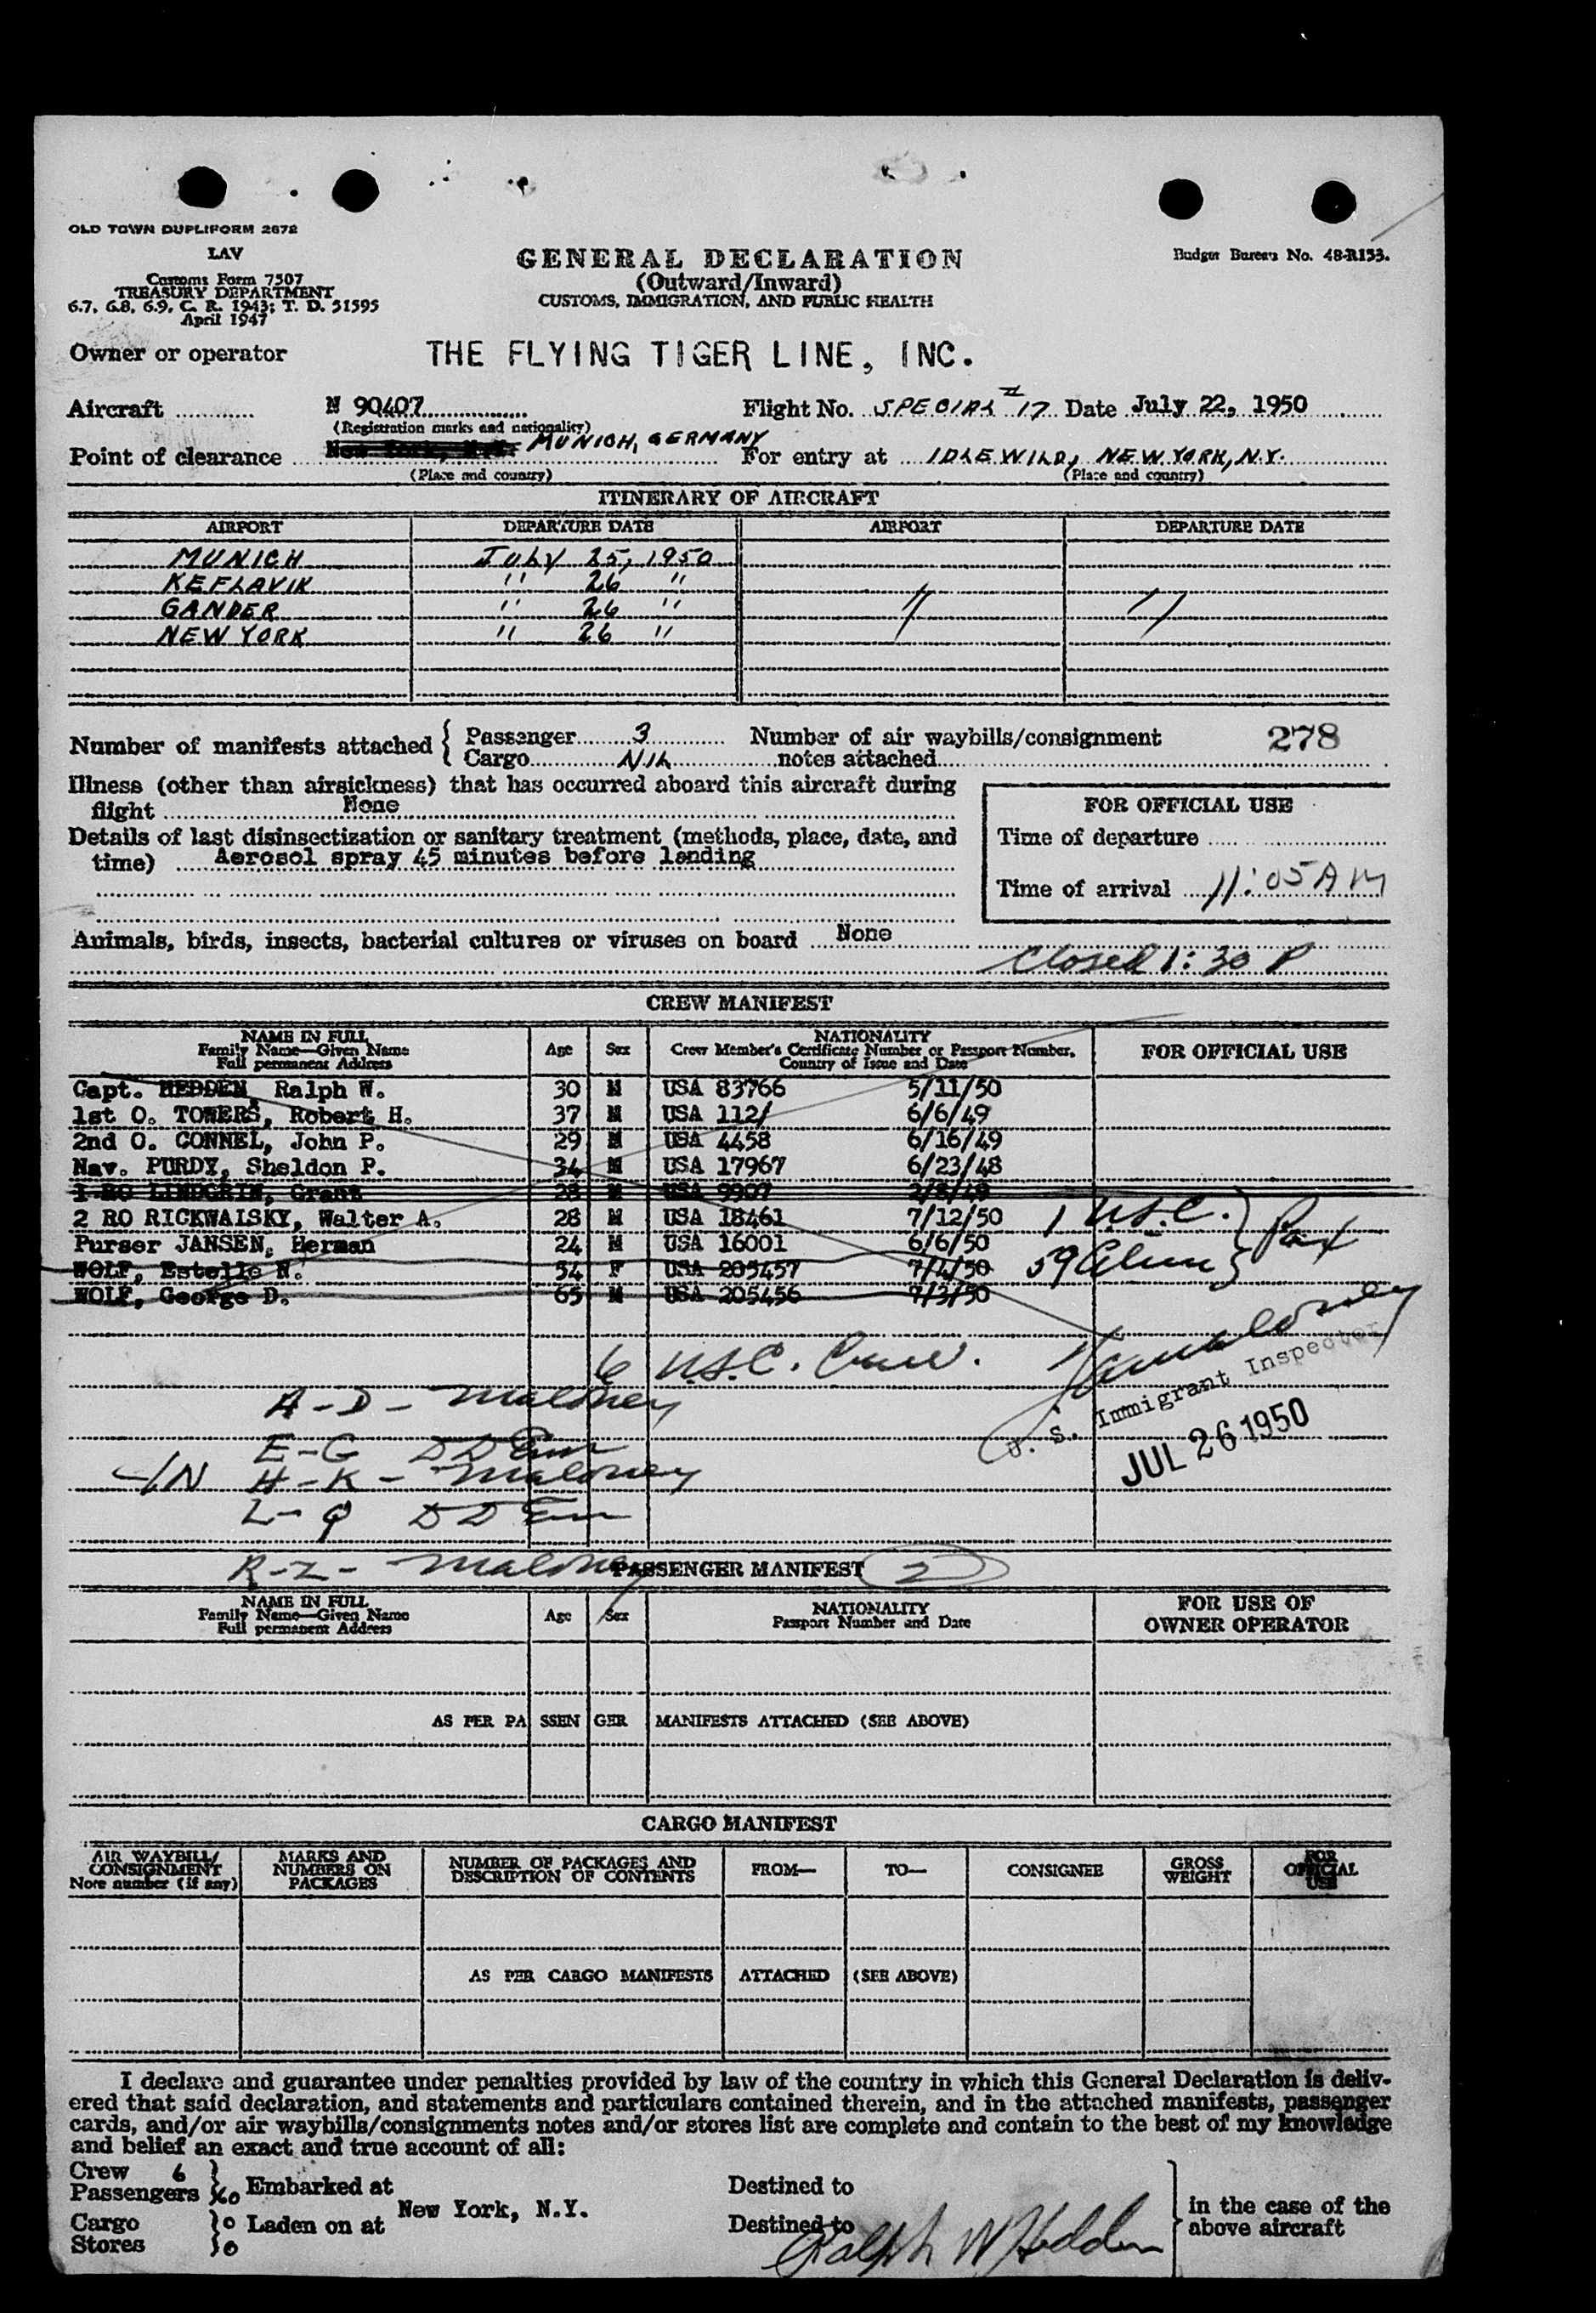 OLD TOWN DUPLIFORM 2672
LAV
Customs Form 7507
TREASURY DEPARTMENT
6.7, 6.8, 6.9, C. R. 1943; T. D. 51595
April 1947
GENERAL DECLARATION
(Outward/Inward)
CUSTOMS, IMMIGRATION, AND PUBLIC HEALTH
Budget Bureau No. 48-R153.
Owner or operator THE FLYING TIGER LINE, INC.
Aircraft N 90407 Flight No. SPECIAL # 17 Date July 22, 1950
(Registration marks and nationality)
Point of clearance New York, N.Y. MUNICH, GERMANY For entry at IDLEWILD, NEW YORK, N.Y.
(Place and country) (Place and country)
ITINERARY OF AIRCRAFT
AIRPORT DEPARTURE DATE AIRPORT DEPARTURE DATE
MUNICH JULY 25, 1950
KEFLAVIK " 26 "
GANDER " 26 " " "
NEW YORK " 26 "
Number of manifests attached { Passenger 3 Number of air waybills/consignment 278
Cargo NIL notes attached
Illness (other than airsickness) that has occurred aboard this aircraft during
flight None
Details of last disinsectization or sanitary treatment (methods, place, date, and
time) Aerosol spray 45 minutes before landing
FOR OFFICIAL USE
Time of departure
Time of arrival 11:05 AM
Animals, birds, insects, bacterial cultures or viruses on board None
Closed 1:30 P
CREW MANIFEST
NAME IN FULL
Family Name—Given Name
Full permanent Address
Age Sex
NATIONALITY
Crew Member's Certificate Number or Passport Number,
Country of Issue and Date
FOR OFFICIAL USE
Capt. HEDDEN, Ralph W. 30 M USA 83766 5/11/50
1st O. TOWERS, Robert H. 37 M USA 112/ 6/6/49
2nd O. CONNEL, John P. 29 M USA 4458 6/16/49
Nav. PURDY, Sheldon P. 34 M USA 17967 6/23/48
1 RO LINDGRIN, Grant 28 M USA 9907 2/8/49
2 RO RICKWALSKY, Walter A. 28 M USA 18461 7/12/50 1 U.S.C. } Pax
Purser JANSEN, Herman 24 M USA 16001 6/6/50
WOLF, Estelle N. 54 F USA 205457 7/4/50 59 Aliens
WOLF, George D. 65 M USA 205456 7/3/50
6 U.S.C. Crew.
U. S. Immigrant Inspector
JUL 26 1950
A-D - Maloney
E-G
H-K - Maloney
L-Q
R-Z - Maloney
PASSENGER MANIFEST 2
NAME IN FULL
Family Name—Given Name
Full permanent Address
Age Sex
NATIONALITY
Passport Number and Date
FOR USE OF
OWNER OPERATOR
AS PER PASSENGER MANIFESTS ATTACHED (SEE ABOVE)
CARGO MANIFEST
AIR WAYBILL/
CONSIGNMENT
Note number (if any)
MARKS AND
NUMBERS ON
PACKAGES
NUMBER OF PACKAGES AND
DESCRIPTION OF CONTENTS
FROM— TO— CONSIGNEE
GROSS
WEIGHT
FOR
OFFICIAL
USE
AS PER CARGO MANIFESTS ATTACHED (SEE ABOVE)
I declare and guarantee under penalties provided by law of the country in which this General Declaration is deliv-
ered that said declaration, and statements and particulars contained therein, and in the attached manifests, passenger
cards, and/or air waybills/consignments notes and/or stores list are complete and contain to the best of my knowledge
and belief an exact and true account of all:
Crew 6 } Embarked at Destined to
Passengers 60
New York, N.Y.
Cargo 0 } Laden on at Destined to
Stores 0
in the case of the
above aircraft
Ralph W Hedden